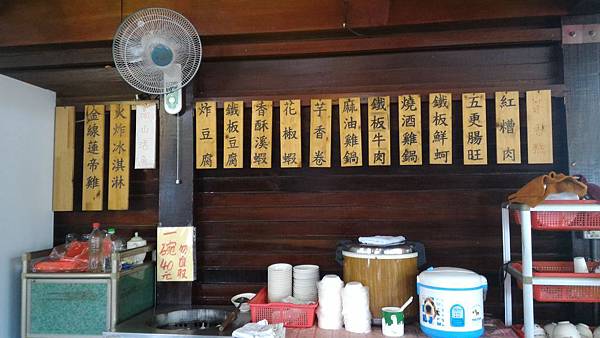 紅糟肉
五更腸旺
鐵板鮮蚵
燒酒雞鍋
鐵板牛肉
麻油雞鍋
芋香卷
花椒蝦
香酥溪蝦
鐵板豆腐
炸豆腐
火炸冰淇淋
金線蓮帝雞
一碗40元
勿自取